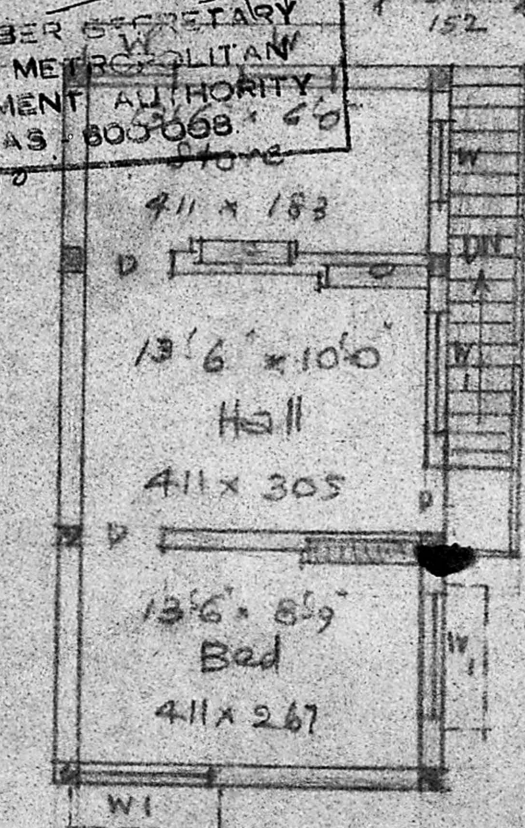 152
BER SECRETARY
METROPOLITAN
MENT AUTHORITY
AS 600008
W
W
6'0"
Store
411 x 183
W
D
DN
13'6" x 10'0"
Hall
411 x 305
W1
D
D
13'6" x 8'9"
Bed
411 x 267
W1
W1